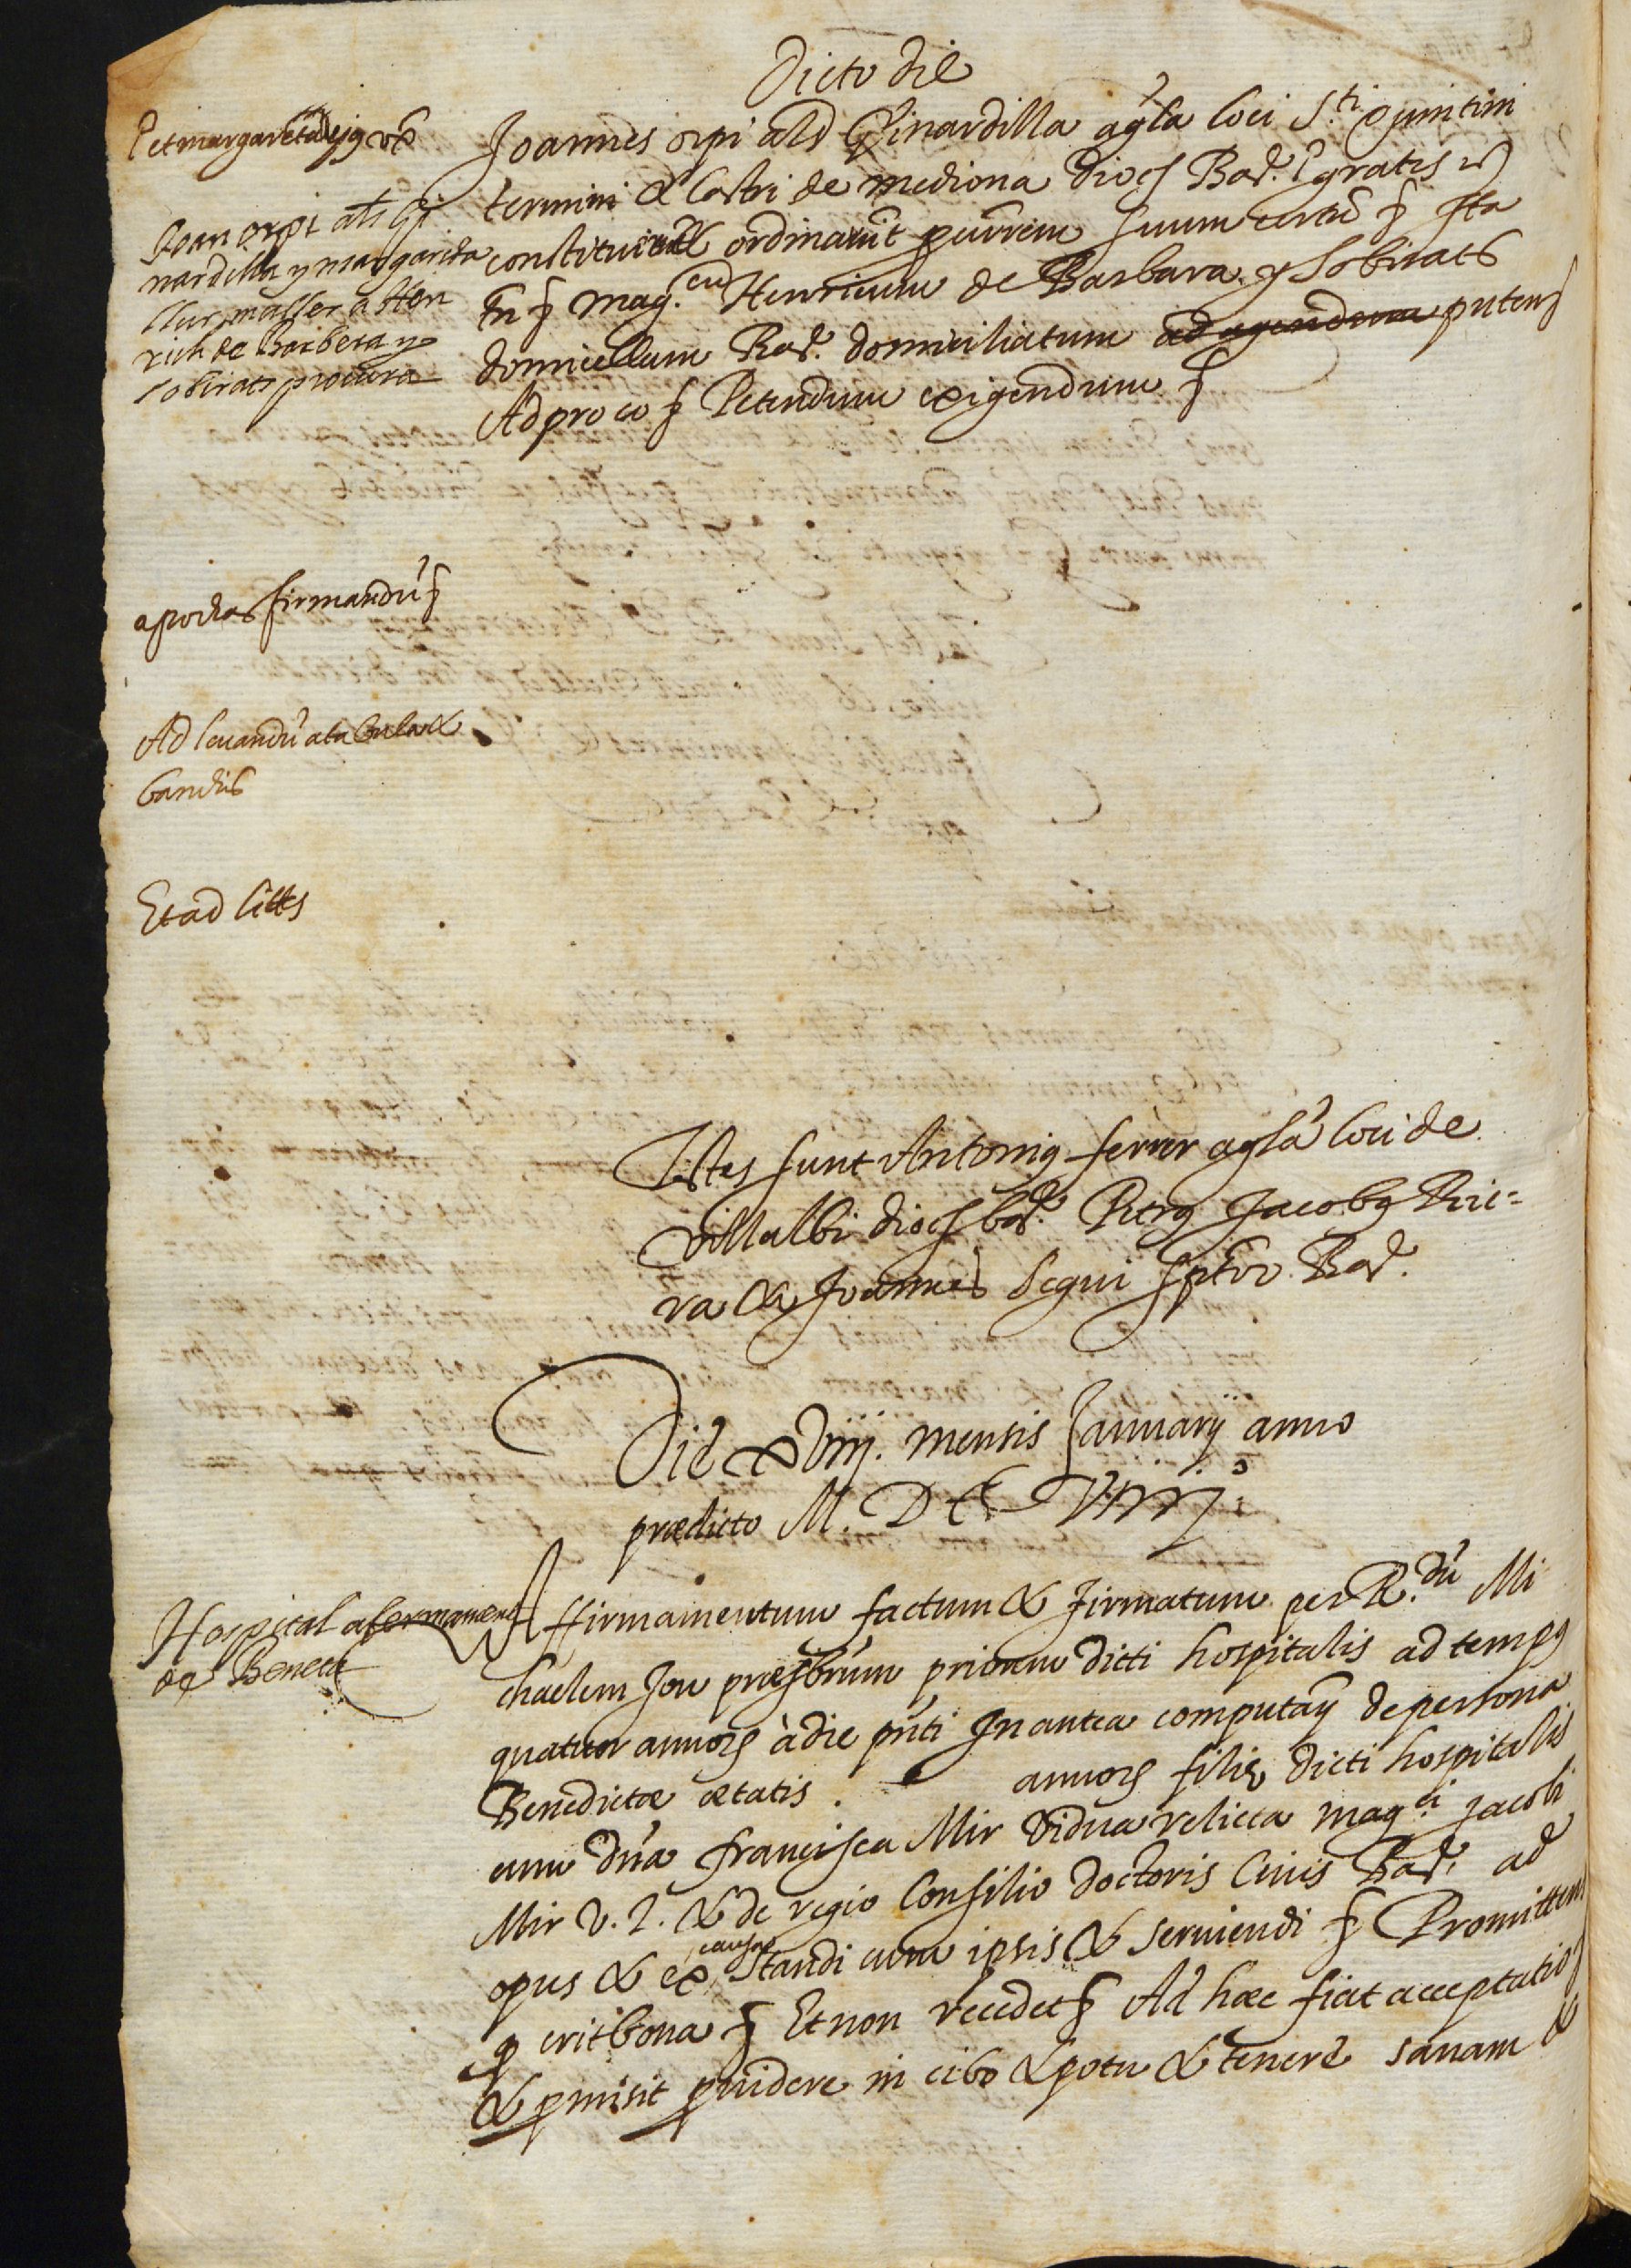 Dicto die
et margareta ejus ux
Joannes orpi als Ginardilla agla loci Sti Quintini
termini & Castri de mediona dioc Bar. gratis
constituerunt & ordinarunt procurem suum certū § Ita
tn § mag.cum Henricum de Barbara y Sobirats
domicellum Bar. domiciliatum ad agendum pntem
Ad pro eo § Petendum exigendum §
Joan orpi als gi
nardilla y margarita
llur muller a Hen
rich de Barbera y
sobirats procura
apochas firmandū §
Ad levandū a tabula &
bandis
Et ad lites
Testes sunt Antonius ferrer aglā loci de
Villalbi dioc bar. Petrus Jacobus Rie=
ra & Joannes Segui scptor Bar.
Die xviiij. mensis Januarij anno
prædicto M. D C Viiij.
Hospital afermament
de Beneta
Affirmamentum factum & firmatum per R.dū Mi
chaelem Jou præsbrum priorem dicti hospitalis ad tempus
quatuor annors à die pnti In antea computan de persona
Benedictæ ætatis . annors filiæ dicti hospitalis
cum dna francisca Mir vidua relicta mag.ci Jacobi
Mir V. I. & de regio Consilio doctoris Civis Bar. ad
opus & ex causa standi cum ipsis & serviendi § Promittens
q erit bona § Et non recedet § Ad hæc fiat acceptatio
& pmisit pvidere in cibo & potu & tenere sanam &